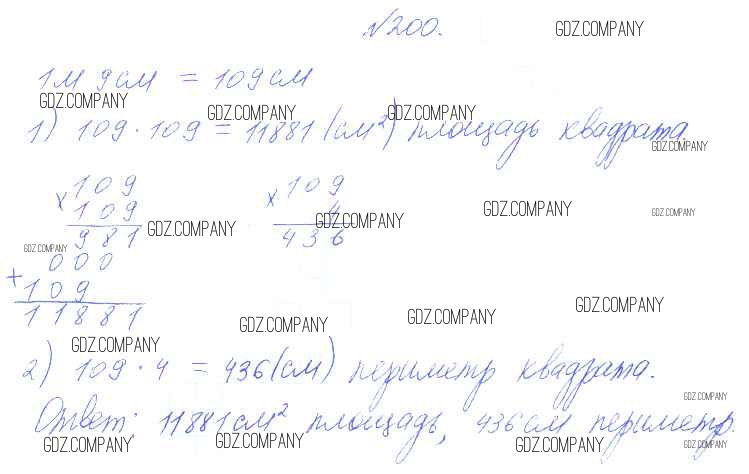 №200. GDZ.COMPANY
1м 9см = 109см
GDZ.COMPANY GDZ.COMPANY GDZ.COMPANY
1) 109 · 109 = 11881 (см²) площадь квадрата.
GDZ.COMPANY
× 109 × 109
109 4
GDZ.COMPANY GDZ.COMPANY GDZ.COMPANY GDZ.COMPANY
981 436
GDZ.COMPANY
000
+
109
11881
GDZ.COMPANY GDZ.COMPANY GDZ.COMPANY
GDZ.COMPANY
2) 109 · 4 = 436 (см) периметр квадрата.
GDZ.COMPANY
Ответ: 11881 см² площадь, 436 см периметр.
GDZ.COMPANY GDZ.COMPANY GDZ.COMPANY GDZ.COMPANY